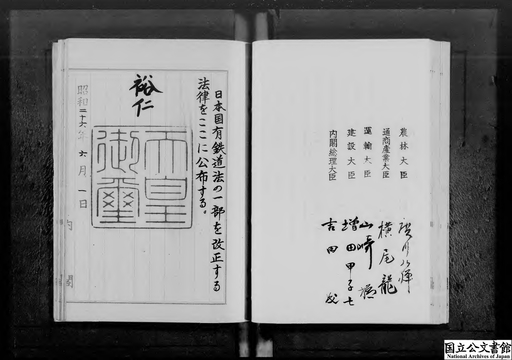 農林大臣
通商産業大臣
運輸大臣
建設大臣
内閣総理大臣
横尾龍
山崎猛
増田甲子七
吉田茂
日本国有鉄道法の一部を改正する
法律をここに公布する。
裕仁
天皇御璽
昭和二十六年六月一日
内閣
国立公文書館
National Archives of Japan